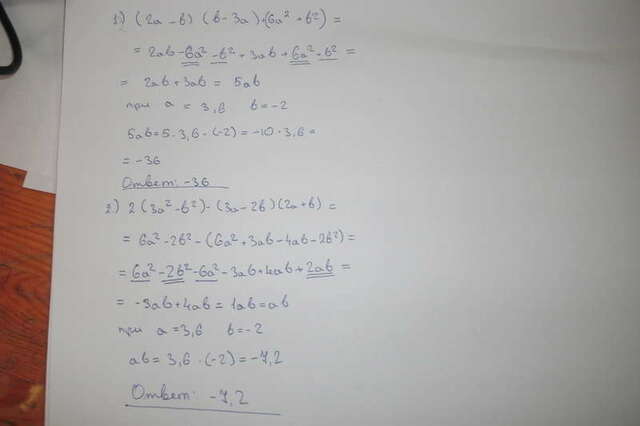 1) (2a - b) (b - 3a) + (6a² + b²) =
= 2ab - 6a² - b² + 3ab + 6a² + b² =
= 2ab + 3ab = 5ab
при a = 3,6 b = -2
5ab = 5 · 3,6 · (-2) = -10 · 3,6 =
= -36
Ответ: -36
2) 2 (3a² - b²) - (3a - 2b) (2a + b) =
= 6a² - 2b² - (6a² + 3ab - 4ab - 2b²) =
= 6a² - 2b² - 6a² - 3ab + 4ab + 2ab =
= -3ab + 4ab = 1ab = ab
при a = 3,6 b = -2
ab = 3,6 · (-2) = -7,2
Ответ: -7,2